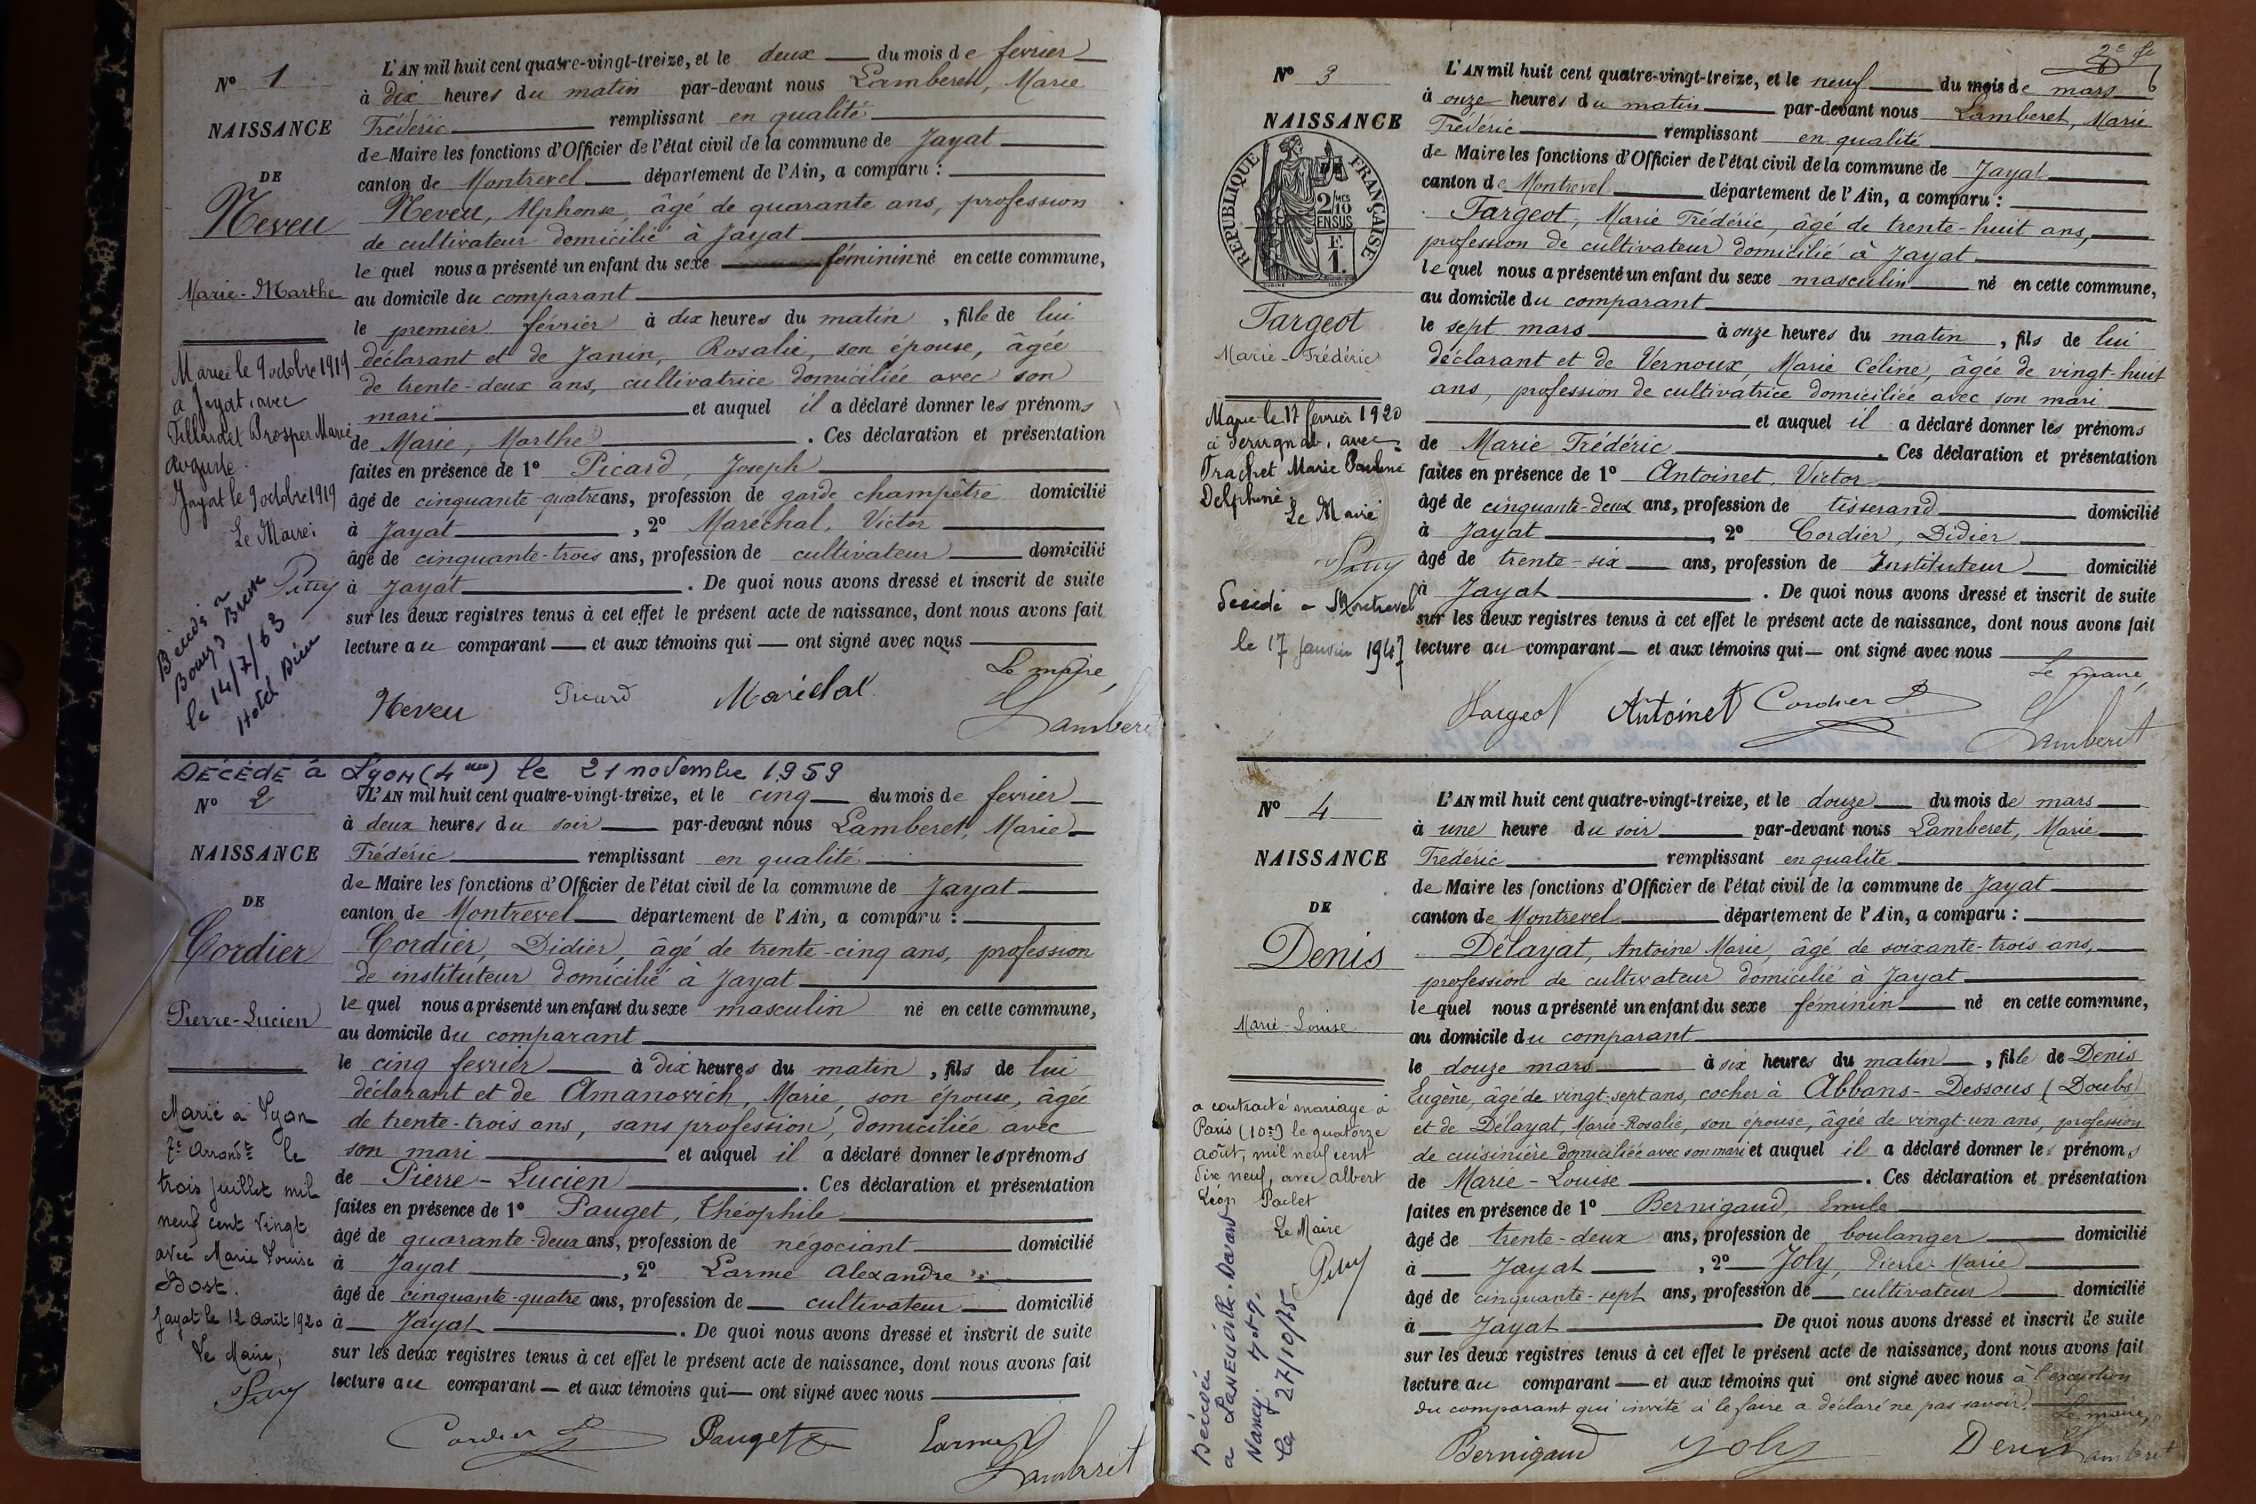 N° 1
NAISSANCE
DE
Neveu
Marie-Marthe
Mariée le 9 octobre 1919
à Jayat, avec
Tillardet Prosper Marie
Auguste.
Jayat le 9 octobre 1919
Le Maire:
Décédée à
Bourg Bresse
le 14/7/63
Hotel Dieu
L'AN mil huit cent quatre-vingt-treize, et le deux du mois de fevrier
à dix heures du matin par-devant nous Lamberet, Marie
Frédéric remplissant en qualité
de Maire les fonctions d'Officier de l'état civil de la commune de Jayat
canton de Montrevel département de l'Ain, a comparu :
Neveu, Alphonse, âgé de quarante ans, profession
de cultivateur domicilié à Jayat
le quel nous a présenté un enfant du sexe féminin né en cette commune,
au domicile du comparant
le premier février à dix heures du matin, fille de lui
déclarant et de Janin, Rosalie, son épouse, âgée
de trente-deux ans, cultivatrice domiciliée avec son
mari et auquel il a déclaré donner les prénoms
de Marie, Marthe. Ces déclaration et présentation
faites en présence de 1° Picard, Joseph
âgé de cinquante-quatre ans, profession de garde champêtre domicilié
à Jayat, 2° Maréchal, Victor
âgé de cinquante-trois ans, profession de cultivateur domicilié
à Jayat. De quoi nous avons dressé et inscrit de suite
sur les deux registres tenus à cet effet le présent acte de naissance, dont nous avons fait
lecture au comparant et aux témoins qui ont signé avec nous
Le maire,
Neveu Picard Maréchal Lamberet
DÉCÉDÉ à Lyon (4 eme) le 21 novembre 1959
N° 2
NAISSANCE
DE
Cordier
Pierre-Lucien
Marié à Lyon
7e Arrondt le
trois juillet mil
neuf cent vingt
avec Marie Louise
Bost.
Jayat le 12 Août 1920
Le Maire,
L'AN mil huit cent quatre-vingt-treize, et le cinq du mois de fevrier
à deux heures du soir par-devant nous Lamberet, Marie
Frédéric remplissant en qualité
de Maire les fonctions d'Officier de l'état civil de la commune de Jayat
canton de Montrevel département de l'Ain, a comparu :
Cordier, Didier, âgé de trente-cinq ans, profession
de instituteur domicilié à Jayat
le quel nous a présenté un enfant du sexe masculin né en cette commune,
au domicile du comparant
le cinq fevrier à dix heures du matin, fils de lui
déclarant et de Amanovich, Marie, son épouse, âgée
de trente-trois ans, sans profession, domiciliée avec
son mari et auquel il a déclaré donner les prénoms
de Pierre-Lucien. Ces déclaration et présentation
faites en présence de 1° Pauget, Théophile
âgé de quarante-deux ans, profession de négociant domicilié
à Jayat, 2° Larme Alexandre
âgé de cinquante-quatre ans, profession de cultivateur domicilié
à Jayat. De quoi nous avons dressé et inscrit de suite
sur les deux registres tenus à cet effet le présent acte de naissance, dont nous avons fait
lecture au comparant et aux témoins qui ont signé avec nous
Cordier D Pauget Larme Lamberet
2e
N° 3
NAISSANCE
REPUBLIQUE FRANÇAISE
2/10 MES
EN SUS
F.
1.
Fargeot
Marie-Frédéric
Marié le 17 février 1920
à Servignat, avec
Trachet Marie Pauline
Delphine.
Le Maire
Décédé à Montrevel
le 17 Janvier 1947
L'AN mil huit cent quatre-vingt-treize, et le neuf du mois de mars
à onze heures du matin par-devant nous Lamberet, Marie
Frédéric remplissant en qualité
de Maire les fonctions d'Officier de l'état civil de la commune de Jayat
canton de Montrevel département de l'Ain, a comparu :
Fargeot, Marie Frédéric, âgé de trente-huit ans,
profession de cultivateur domicilié à Jayat
le quel nous a présenté un enfant du sexe masculin né en cette commune,
au domicile du comparant
le sept mars à onze heures du matin, fils de lui
déclarant et de Vernoux, Marie Céline, âgée de vingt-huit
ans, profession de cultivatrice domiciliée avec son mari
et auquel il a déclaré donner les prénoms
de Marie Frédéric. Ces déclaration et présentation
faites en présence de 1° Antoinet, Victor
âgé de cinquante-deux ans, profession de tisserand domicilié
à Jayat, 2° Cordier, Didier
âgé de trente-six ans, profession de Instituteur domicilié
à Jayat. De quoi nous avons dressé et inscrit de suite
sur les deux registres tenus à cet effet le présent acte de naissance, dont nous avons fait
lecture au comparant et aux témoins qui ont signé avec nous
Le maire,
Fargeot Antoinet Cordier D Lamberet
N° 4
NAISSANCE
DE
Denis
Marie-Louise
a contracté mariage à
Paris (10e) le quatorze
août, mil neuf cent
dix neuf, avec Albert
Léon Paclet
Le Maire
Décédée
à LANEUVILLE-Devant-
Nancy. M et M.
Le 27/10/75
L'AN mil huit cent quatre-vingt-treize, et le douze du mois de mars
à une heure du soir par-devant nous Lamberet, Marie
Frédéric remplissant en qualité
de Maire les fonctions d'Officier de l'état civil de la commune de Jayat
canton de Montrevel département de l'Ain, a comparu :
Délayat, Antoine Marie, âgé de soixante-trois ans,
profession de cultivateur domicilié à Jayat
le quel nous a présenté un enfant du sexe féminin né en cette commune,
au domicile du comparant
le douze mars à six heures du matin, fille de Denis
Eugène, âgé de vingt-sept ans, cocher à Abbans-Dessous (Doubs)
et de Délayat, Marie-Rosalie, son épouse, âgée de vingt-un ans, profession
de cuisinière domiciliée avec son mari et auquel il a déclaré donner les prénoms
de Marie-Louise. Ces déclaration et présentation
faites en présence de 1° Bernigaud, Emile
âgé de trente-deux ans, profession de boulanger domicilié
à Jayat, 2° Joly, Pierre Marie
âgé de cinquante-sept ans, profession de cultivateur domicilié
à Jayat De quoi nous avons dressé et inscrit de suite
sur les deux registres tenus à cet effet le présent acte de naissance, dont nous avons fait
lecture au comparant et aux témoins qui ont signé avec nous à l'exception
du comparant qui invité à le faire a déclaré ne pas savoir.
Le maire,
Bernigaud Joly Denis Lamberet